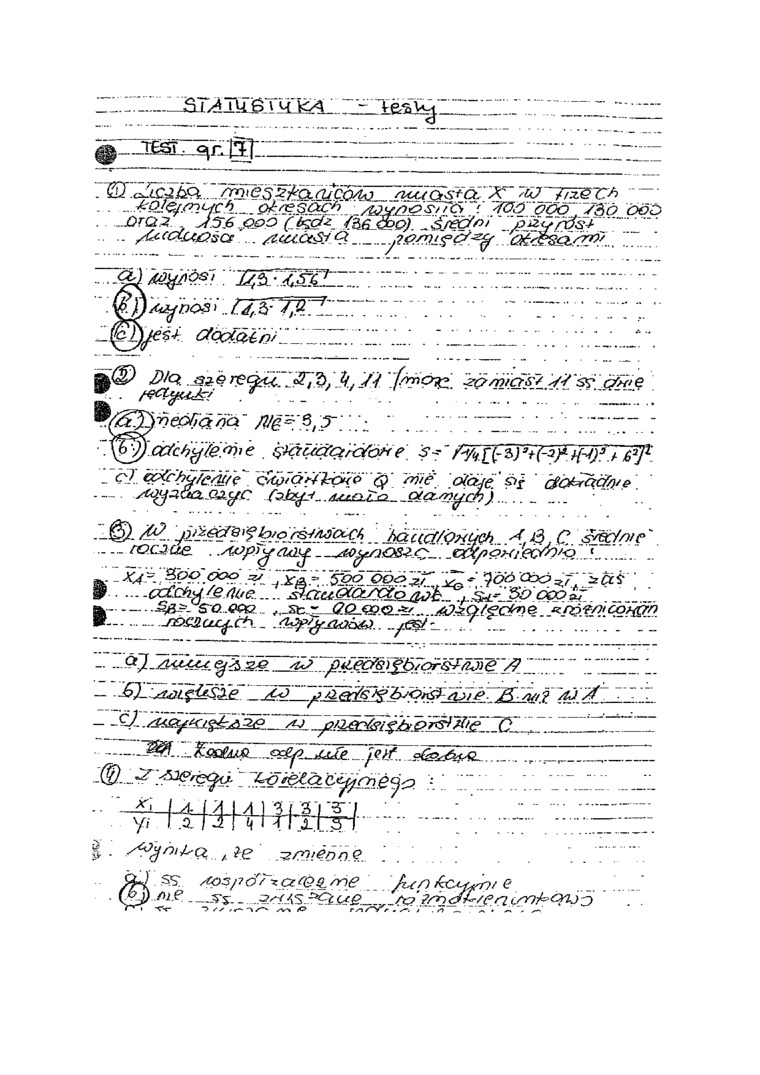 STATYSTYKA - testy
TEST. gr. 7
① Liczba mieszkańców miasta X w trzech
kolejnych okresach wynosiła: 100 000, 130 000
oraz 156 000 (bądź 136 000) średni przyrost
ludności miasta pomiędzy okresami
a) wynosi √1,3 · 1,56
b) wynosi √1,3 · 1,2
c) jest dodatni
② Dla szeregu 2, 3, 4, 11 (może zamiast 11 są dwie
jedynki
a) mediana Me = 3,5
b) odchylenie standardowe s = √1/4 [(-3)²+(-2)²+(-1)²+6²]²
c) odchylenie ćwiartkowe Q nie daje się dokładnie
wyznaczyć (zbyt mało danych)
③ W przedsiębiorstwach handlowych A, B, C średnie
roczne wpływy wynoszą odpowiednio:
xA = 300 000 zł, xB = 500 000 zł, xC = 700 000 zł, zaś
odchylenie standardowe, SA = 30 000 zł
SB = 50 000, SC = 000 zł względne zróżnicowan
rocznych wpływów jest
a) mniejsze w przedsiębiorstwie A
b) większe w przedsiębiorstwie B niż w A
c) największe w przedsiębiorstwie C
żadna odp nie jest dobra
④ Z szeregu korelacyjnego:
xi | 1 | 1 | 1 | 3 | 3 | 3 |
yi | 2 | 2 | 4 | 1 | 2 | 5 |
wynika, że zmienne
a) są współzależne funkcyjnie
b) nie są